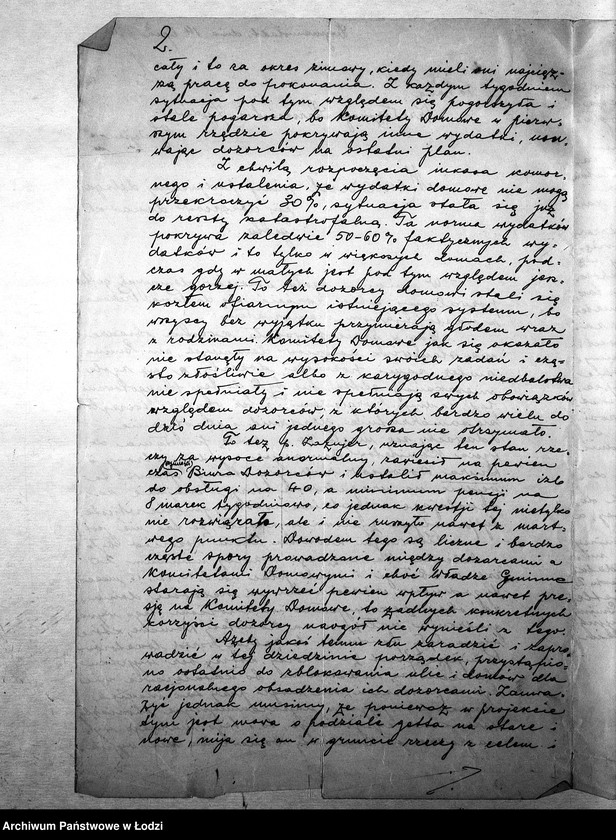 2.
cały i to za okres zimowy, kiedy mieli oni najcięż-
szą pracę do pokonania. Z każdym tygodniem
sytuacja pod tym względem się pogorszyła i
stale pogarsza, bo Komitety Domowe w pierw-
szym rzędzie pokrywają inne wydatki, usu-
wając dozorców na ostatni plan.
Z chwilą rozpoczęcia inkasa komor-
nego i ustalenia, że wydatki domowe nie mogą
przekraczyć 30%, sytuacja stała się już
do reszty katastrofalną. Ta norma wydatków
pokrywa zaledwie 50-60% faktycznych wy-
datków i to tylko w większych domach, pod-
czas gdy w małych jest pod tym względem jesz-
cze gorzej. To też dozorcy domowi stali się
kozłem ofiarnym istniejącego systemu, bo
wszyscy bez wyjątku przymierają głodem wraz
z rodzinami. Komitety Domowe jak się okazało
nie stanęły na wysokości swoich zadań i czę-
sto złośliwie albo z karygodnego niedbalstwa
nie spełniały i nie spełniają swych obowiązków
względem dozorców, z których bardzo wielu do
dziś dnia ani jednego grosza nie otrzymało.
To też p. uznając ten stan rze-
czy za wysoce anormalny, zawiesił na pewien
czas Biura Dozorców i ustalił maksimum izb
do obsługi na 40, a minimum pensji na
8 marek tygodniowo, co jednak kwestji tej nietylko
nie rozwiązało, ale i nie ruszyło nawet z mart-
wego punktu. Dowodem tego są liczne i bardzo
częste spory prowadzone między dozorcami a
Komitetami Domowymi i choć władze Gminne
starają się wywrzeć pewien wpływ a nawet pre-
sję na Komitety Domowe, to żadnych konkretnych
korzyści dozorcy naogół nie wynieśli z tego.
Ażeby jakoś temu złu zaradzić i zapro-
wadzić w tej dziedzinie porządek, przystąpio-
no ostatnio do zblokowania ulic i domów dla
racjonalnego obsadzenia ich dozorcami. Zauwa-
żyć jednak musimy, że ponieważ w projekcie
tym jest mowa o podziale getta na stare i
nowe, mija się on w gruncie rzeczy z celem i
Archiwum Państwowe w Łodzi